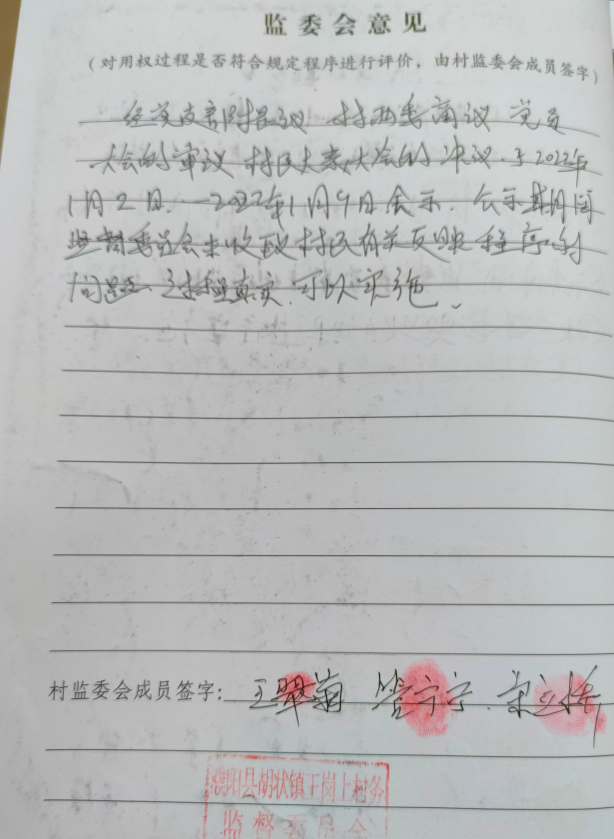 监委会意见
(对用权过程是否符合规定程序进行评价，由村监委会成员签字)
经党支部的提议 村两委商议 党员
大会的审议 村民代表大会的决议.于2022年
1月2日.—2022年1月9日公示.公示期间
监督委员会未收到村民有关反映程序的
问题、过程真实.可以实施.
村监委会成员签字: 王翠菊 宁宁.
濮阳县胡状镇王岗上村务
监督委员会